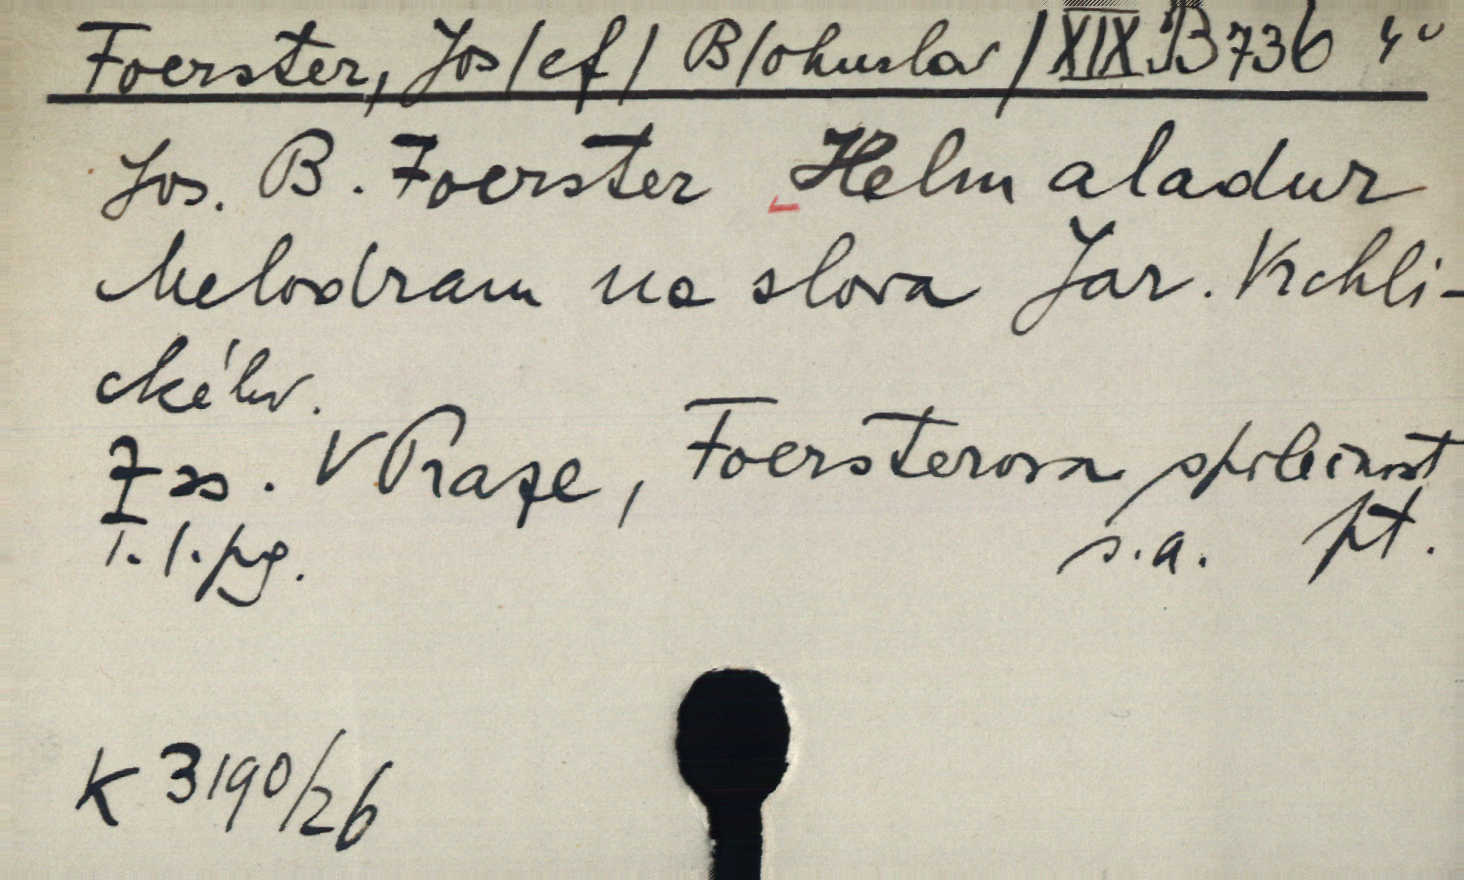 Foerster, Jos/ef/ B/ohuslav/ XIX B 736 4°
Jos. B. Foerster Helm aladur
Melodram na slova Jar. Vrchli-
ckého.
V Praze, Foersterova společnost
1. l. pg. s.a. pt.
K 3190/26